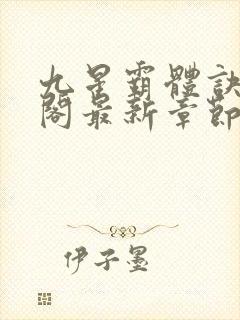 九星霸體訣
閣最新章節
伊子墨